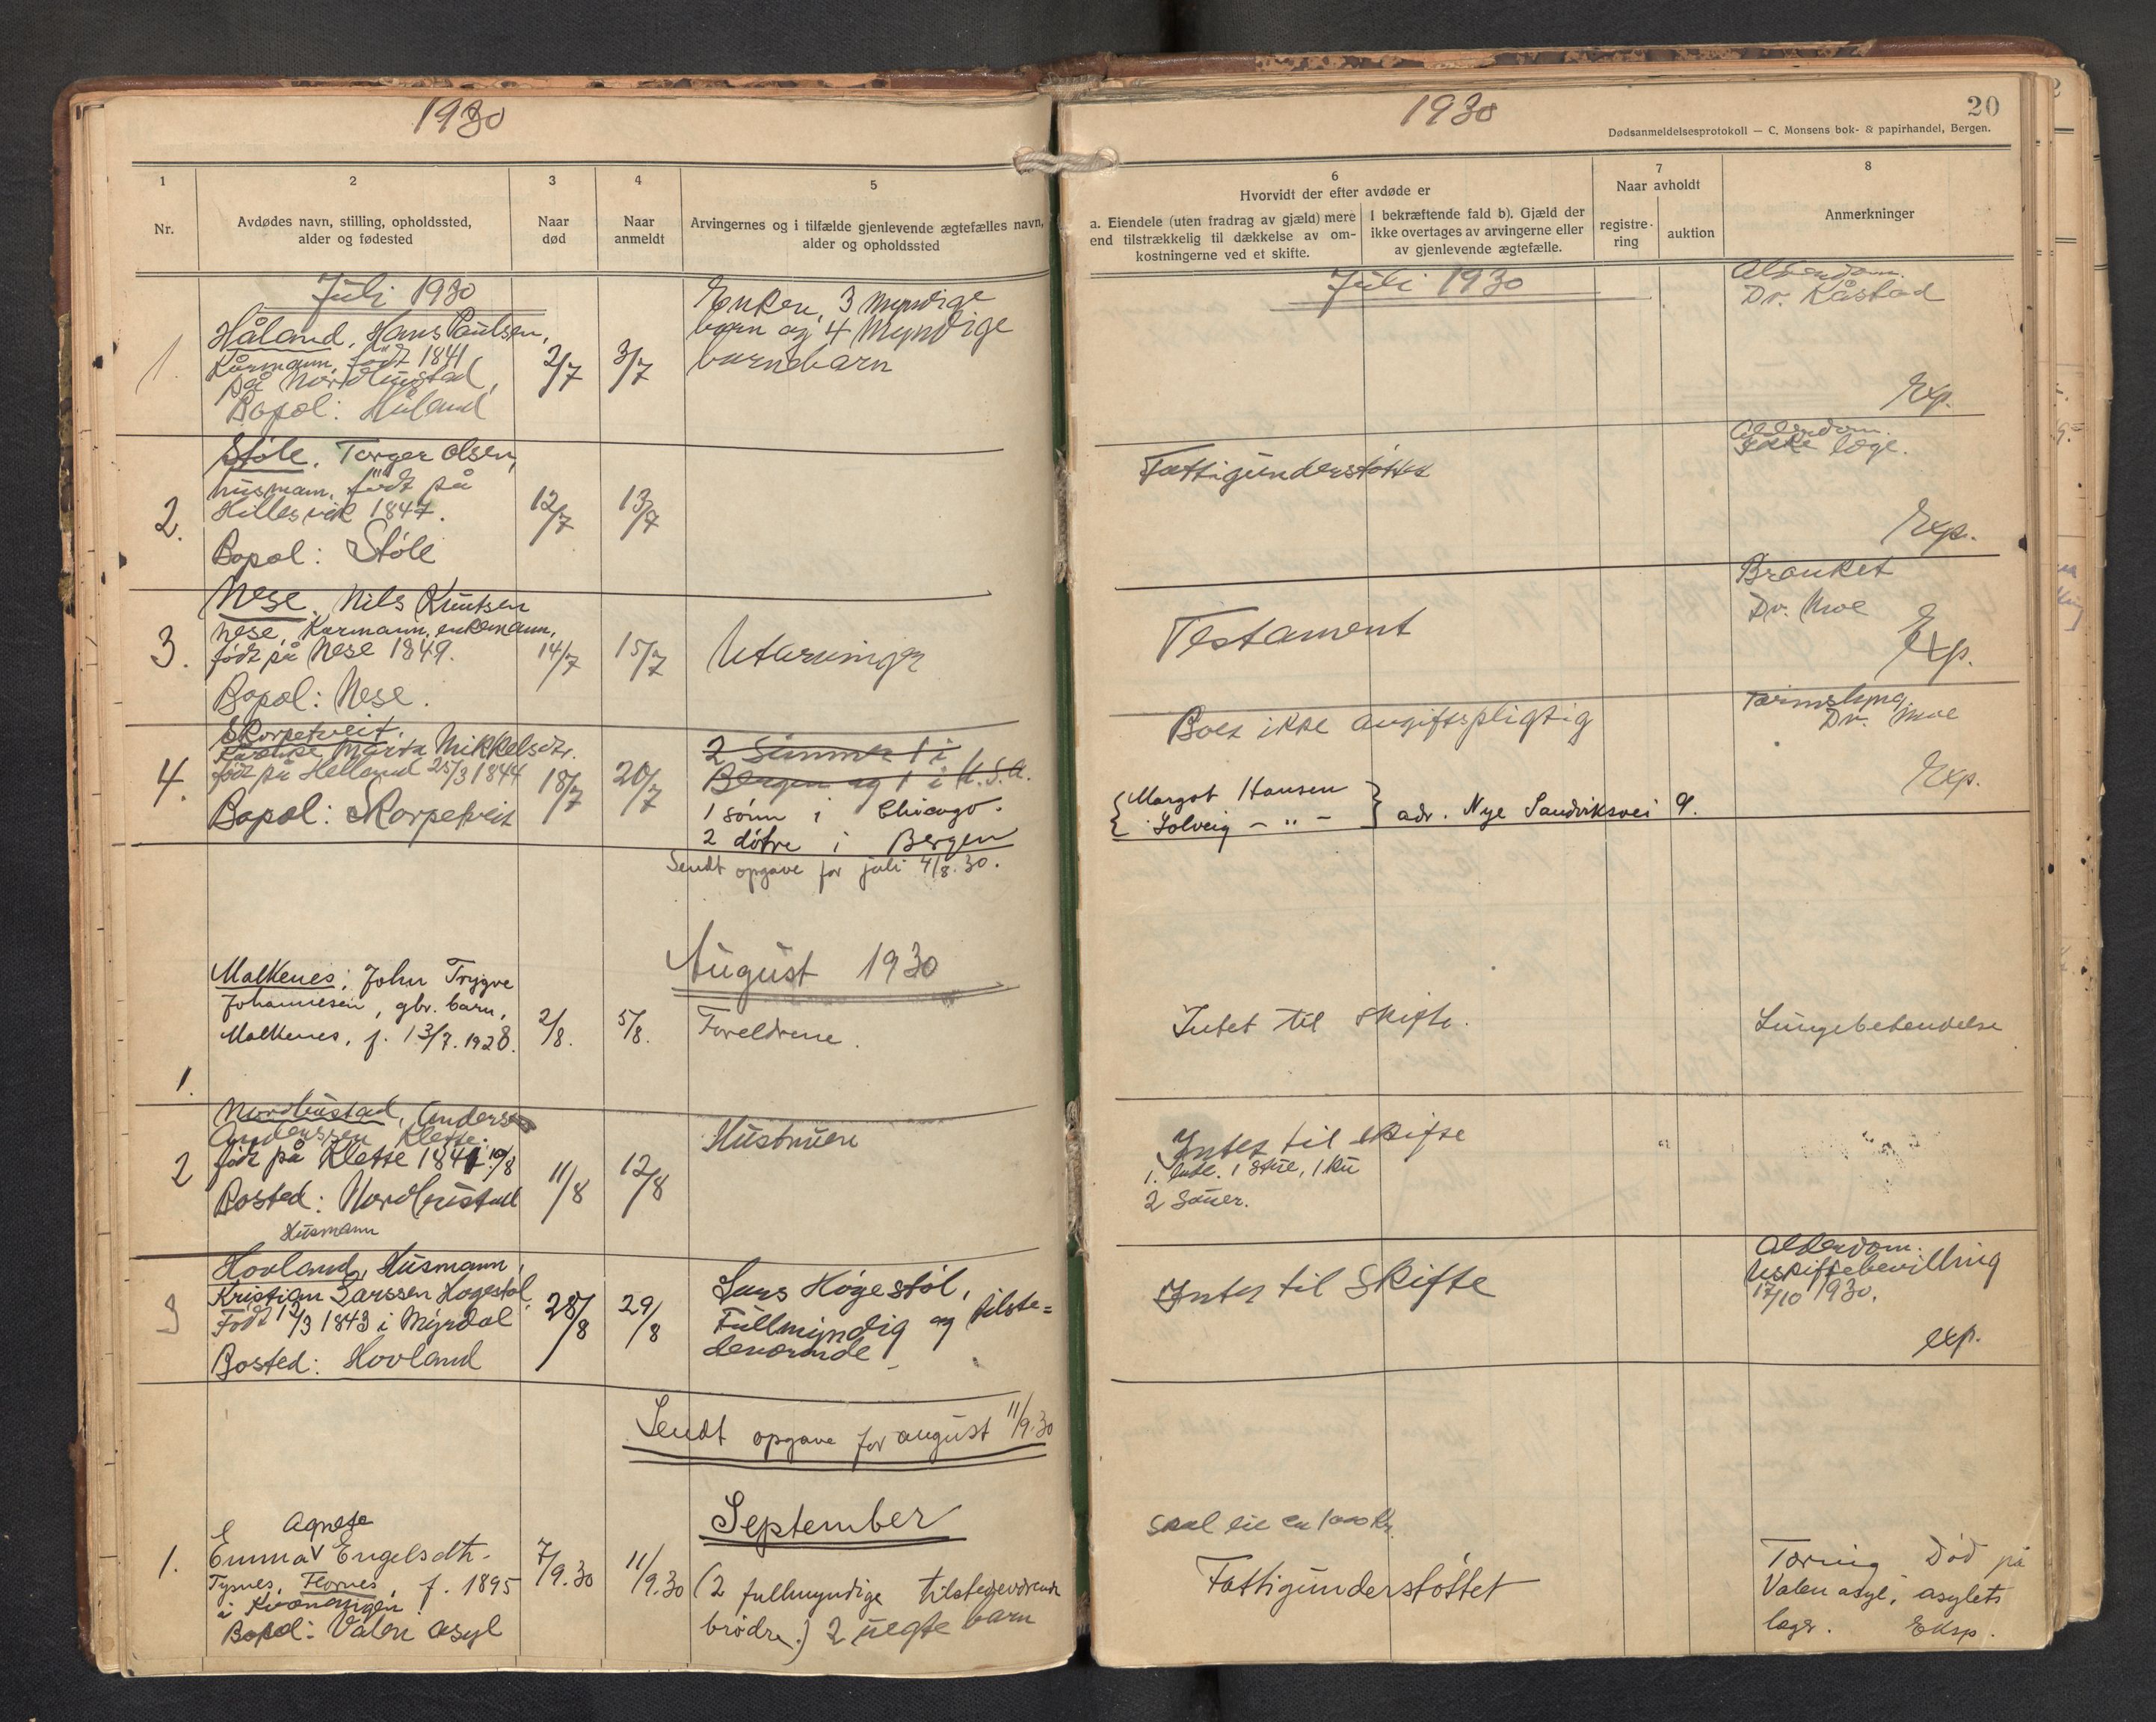 1930
1
2
3
4
5
Nr.
Avdødes navn, stilling, opholdssted,
alder og fødested
Naar
død
Naar
anmeldt
Arvingernes og i tilfælde gjenlevende ægtefælles navn,
alder og opholdssted
Juli 1930
1.
Håland, Hans Paulsen,
Kårmann, født 1841
på Nordhustad,
Bopæl: Håland
2/7
3/7
Enken, 3 myndige
barn og 4 myndige
barnebarn
2.
Støle, Torger Olsen,
husmann, født på
Hillesvik 1847.
Bopæl: Støle
12/7
13/7
3.
Nese, Nils Knutsen
Nese, Kårmann, enkemann,
født på Nese 1849.
Bopæl: Nese.
14/7
15/7
Utarvinger
4.
Skorpetveit,
Marta Mikkelsdtr.
født på Helland 25/3 1844
Bopæl: Skorpetveit
18/7
20/7
2 Sønner 1 i
Bergen og 1 i U.S.A.
1 sønn i Chicago.
2 døtre i Bergen
Sendt opgave for juli 4/8.30.
August 1930
1.
Malkenes, John Trygve
Johannesen, gbr. barn,
Malkenes, f. 13/7.1928.
2/8.
5/8.
Foreldrene.
2
Nordhustad, Anders
Anderssen Klette.
født på Klette 1841 10/8
Bosted: Nordhustad
Husmann
11/8
12/8
Hustruen
3
Hovland, Husmann,
Kristian Larssen Høgestøl
Født 12/3 1843 i Myrdal
Bosted: Hovland
28/8
29/8
Lars Høgestøl,
Fullmyndig og tilste=
deværende
Sendt opgave for august 11/9.30
September
1.
Agnete
Emma Engelsdtr.
Tysnes, Flornes, f. 1895
i Kvænangen
Bopæl: Valen asyl
7/9.30
11/9.30
(2 fullmyndige tilstedeværende
brødre.) 2 uegte barn
1930
20
Dødsanmeldelsesprotokoll — C. Monsens bok- & papirhandel, Bergen.
6
Hvorvidt der efter avdøde er
a. Eiendele (uten fradrag av gjæld) mere
end tilstrækkelig til dækkelse av om-
kostningerne ved et skifte.
I bekræftende fald b). Gjæld der
ikke overtages av arvingerne eller
av gjenlevende ægtefælle.
7
Naar avholdt
registre-
ring
auktion
8
Anmerkninger
Juli 1930
Alderdom.
Dr. Kåstad
Exp.
Fattigunderstøttet
Alderdom.
Ikke læge.
Exp.
Testament
Bronket
Dr. Moe
Exp.
Boet ikke avgiftspligtig
Tarmslyng
Dr. Moe
Exp.
{Margot Hansen
Solveig — " —} adr. Nye Sandviksvei 9.
Intet til skifte.
Lungebetendelse
Intet til skifte
1 stue, 1 ku
2 sauer.
Intet til Skifte
Alderdom.
Uskiftebevilling
17/10 1930.
exp.
Skal eie ca 1000 Kr.
Fattigunderstøttet
Tæring Død på
Valen asyl, asylets
læge. Eksp.